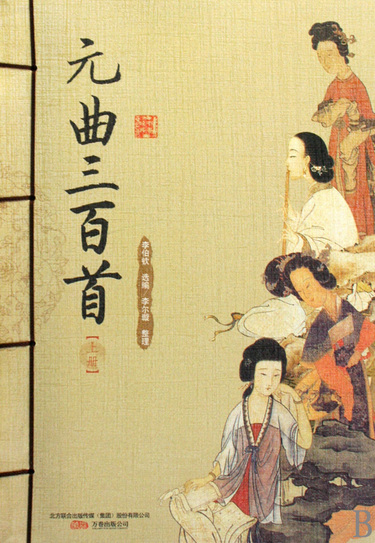 元曲三百首
【上册】
李伯钦 选编/李尔暾 整理
北方联合出版传媒（集团）股份有限公司
万卷出版公司
B